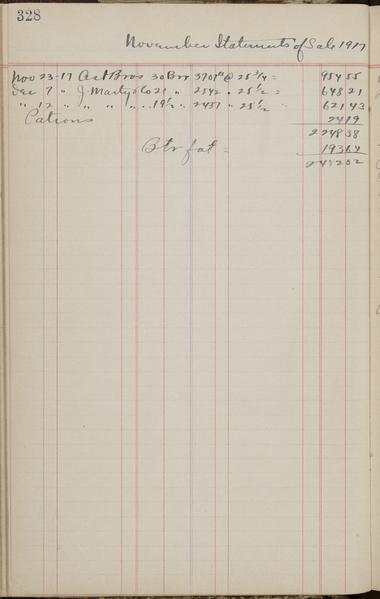 328
November Statements of Sale 1917
Nov 23-17 Ast Bros 30 Brr 3707 # @ 25 3/4 = 954 55
Dec 7 " J. Martyr Co 21 " 2542 " 25 1/2 = 648 21
" 12 " " " " 19 1/2 " 2437 " 25 1/2 " 621 43
Patrons 24 19
2248 38
Btr fat = 193 64
2442 02